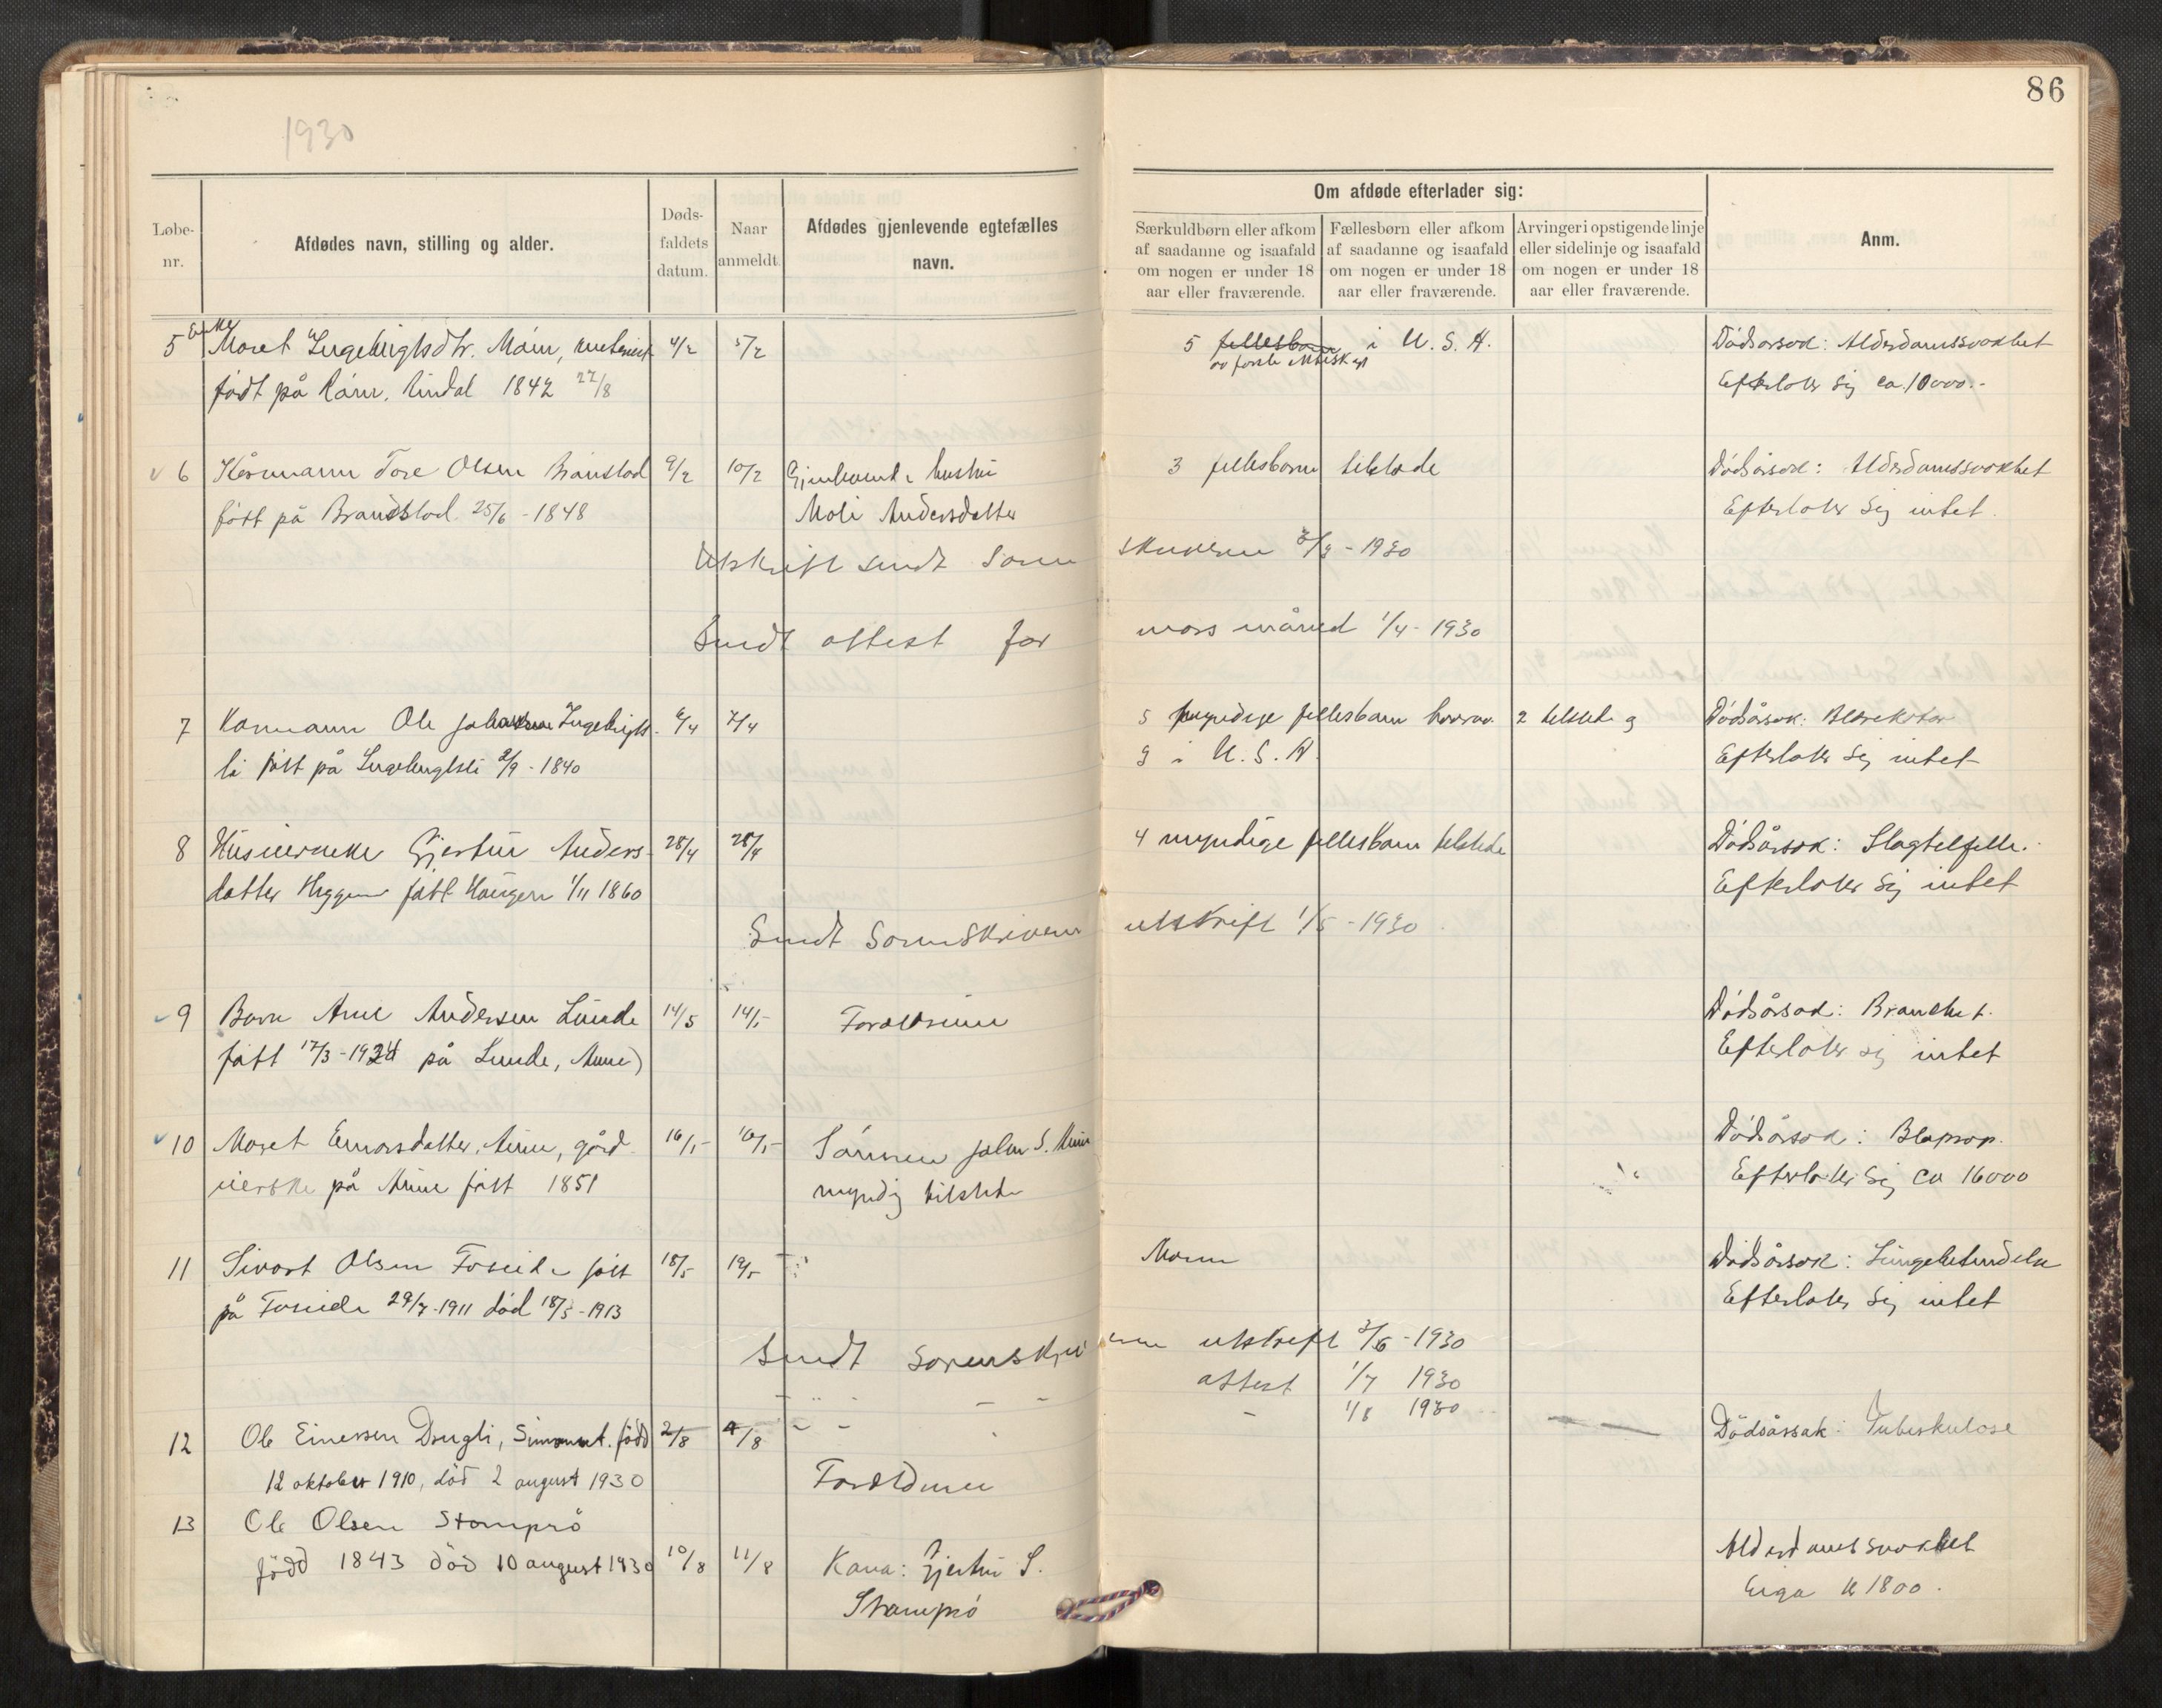 86
1930
Løbe-
nr.
Afdødes navn, stilling og alder.
Døds-
faldets
datum.
Naar
anmeldt.
Afdødes gjenlevende egtefælles
navn.
Om afdøde efterlader sig:
Særkuldbørn eller afkom
af saadanne og isaafald
om nogen er under 18
aar eller fraværende.
Fællesbørn eller afkom
af saadanne og isaafald
om nogen er under 18
aar eller fraværende.
Arvinger i opstigende linje
eller sidelinje og isaafald
om nogen er under 18
aar eller fraværende.
Anm.
Enke
5 Moret Ingebrigtsdtr. 4/2 5/2 5 fellesbarn i U. S. A. Dødsorsod: Alderdomssvakhet
født på 1842 22/8 Efterlater sig ca. 10000.-
6 Kårmann Tore Olsen Branstad 9/2 10/2 Gjenlevende hustru 3 fellesbarn tilstede Dødsårsak: Alderdomssvakhet
født på Brandstad 25/6 - 1848 Moli Andersdatter Efterlater sig intet.
Utskrift sendt Soren skriveren 3/3 - 1930
Sendt attest for mars måned 1/4 - 1930
7 Kårmann Ole Ingebrigts- 6/4 7/4 5 myndige fellesbarn hvorav 2 tilstede og Dødsårsak:
li født på Ingebrigtsli 2/9 - 1840 3 i U. S. A. Efterlater sig intet
8 Gjertru Anders- 28/4 28/4 4 myndige fellesbarn tilstede Dødsårsak: Slagtilfelle.
datter født Haugen 1/11 1860 Efterlater sig intet
Sendt Sorenskriveren utskrift 1/5 - 1930
9 Barn Arne Andersen Lunde 14/5 14/5 Foreldrene Dødsårsak:
født 17/3 - 1924 på Lunde, Efterlater sig intet
10 Moret Einarsdatter, gård- 16/5 16/5 Sønnen Dødsårsak:
på født 1851 myndig tilstede Efterlater sig ca 16000
11 Sivart Olsen født 18/5 19/5 Moren Dødsårsak: Lungebetendelse
på 29/7-1911 død 18/5-1913 Efterlater sig intet
Sendt Sorenskriveren utskrift 3/6 - 1930
attest 1/7 1930
- 1/8 1930
12 Ole Einersen Drugli, født 2/8 4/8 Dødsårsak: Tuberkulose
12 oktober 1910, død 2 august 1930 Foreldrene
13 Ole Olsen Stomprø
født 1843 død 10 august 1930 10/8 11/8 Kona: Gjertru S. Alderdomssvakhet
Stomprø Eiga kr 1800.